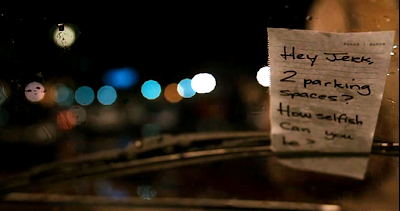 Hey Jerk,
2 parking
spaces?
How selfish
Can you
be?